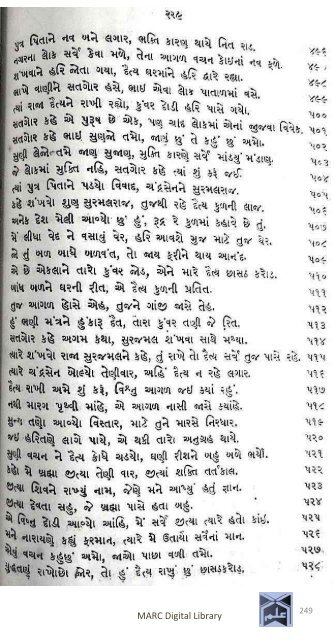 ૨૨૯
પુત્ર પિતાને નવ બને લગાર, ભક્તિ કારણ થાયે નિત રાડ.
નગરના લોક સર્વે કેવા મળે, તેના આગળ વચન કોઇનાં નવ ફળે. ૪૯૬
શંખવાને હરિ જોતા ગયા, દૈત્ય ઘરમાંને હરિ દ્વારે રહ્યા. ૪૯૭
ભાખે વાણીને સતગોર હસે, ભાઈ એવા લોક પાતાળમાં વસે. ૪૯૮
ત્યાં રાજા દૈત્યને રાખી રહ્યો, કુંવર દોડી હરિ પાસે ગયો. ૪૯૯
સતગોર કહે એ પુરૂષ છે એક, પણ ચાંદ લોકમાં એનાં જીજવા વિવેક. ૫૦૦
સતગોર કહે ભાઇ સુણજો તમો, જાણું છું તે કહું છું અમો. ૫૦૧
સુણી લેજો તમે જાણ સુજાણ, મુક્તિ કારણે સર્વે માંડયું મંડાણ. ૫૦૩
જે લોકમાં મુક્તિ નહિ, સતગોર કહે ત્યાં શું કરૂં જઈ. ૫૦૪
ત્યાં પુત્ર પિતાને પડયો વિવાદ, ચંદ્રસેનને સુરમલરાજ. ૫૦૫
કહે શંખવો શુણ સુરમલરાજ, તુજથી રહે દૈત્ય કુળની લાજ. ૫૦૬
અનેક દેશ મેલી આવ્યો છું હું, રૂદ્ર રે કુળમાં કહાવે છે તું. ૫૦૭
મેં લીધા વેદ ને વસાવું વેર, હરિ આવશે મુજ માટે તુજ ઘેર. ૫૦૮
જો તું બળ બાંધે બળવંત, તો જાય ફરીને થાય આનંદ. ૫૦૯
એ છે એકલાને તારો કુંવર જોડ, એને મારે દૈત્ય છાસઠ કરોડ. ૫૧૦
બાંધ બળને ઘરની રીત, એ દૈત્ય કુળની પ્રતિત. ૫૧૧
તુજ આગળ હોસે એહ, તુજને ગાંજી જાસે તેહ. ૫૧૨
હું ભણી મંત્રને હુંકારૂં દૈત, તારા કુંવર તણી જે રિત. ૫૧૩
સતગોર કહે અગમ કથા, સુરજમલ શંખવા સાથે મથ્યા. ૫૧૪
ત્યારે શંખવો રાજા સુરજમલને કહે, તું રાખે તો દૈત્ય સર્વે તુજ પાસે રહે. ૫૧૫
ત્યારે ચંદ્રસેન બોલ્યો તેણીવાર, અહિં દૈત્ય ન રહે લગાર. ૫૧૬
દૈત્ય રાખી અમે શું કરૂં, વિશ્નુ આગળ જઈ કયાં રહું. ૫૧૭
નથી મારગ પૃથ્વી માંહે, એ આગળ નાસી જાસે કયાંહે. ૫૧૮
સુન્ય તણો આવ્યો વિસ્તાર, માટે તુને મારસે નિરધાર. ૫૧૯
જઇ હરિતણે લાગો પાયે, એ થકી તારો અનુગ્રહ થાયે. ૫૨૦
સુણી વચન ને દૈત્ય ક્રોધે ચડયો, ધણી રીશને બહુ બળે ભર્યો. ૫૨૧
કહો મેં બ્રહ્મા જીત્યા તેણી વાર, જીત્યાં શક્તિ તતકાલ. ૫૨૨
જીત્યા શિવને રાખ્યું નામ, જેણે મને આપ્યું હતું જ્ઞાન. ૫૨૩
જીત્યા દેવતા સહુ, જે બ્રહ્મા પાસે હતા બહુ. ૫૨૪
એ વિષ્નુ દોડી આવ્યો આંહિ, મેં સર્વે જીત્યા ત્યારે હતો કાંઇ. ૫૨૫
મને નારાયણે કહ્યું ફરમાન, ત્યારે મેં ઉતાર્યા સર્વેનાં માન. ૫૨૬
એવું વચન કહુછું અમો, જાઓ પાછા વળી તમો. ૫૨૭
યુદ્ધતણું રાખોછો જોર, તો હું દૈત્ય રાખું છું છાસઠકરોડ. ૫૨૮
MARC Digital Library
249